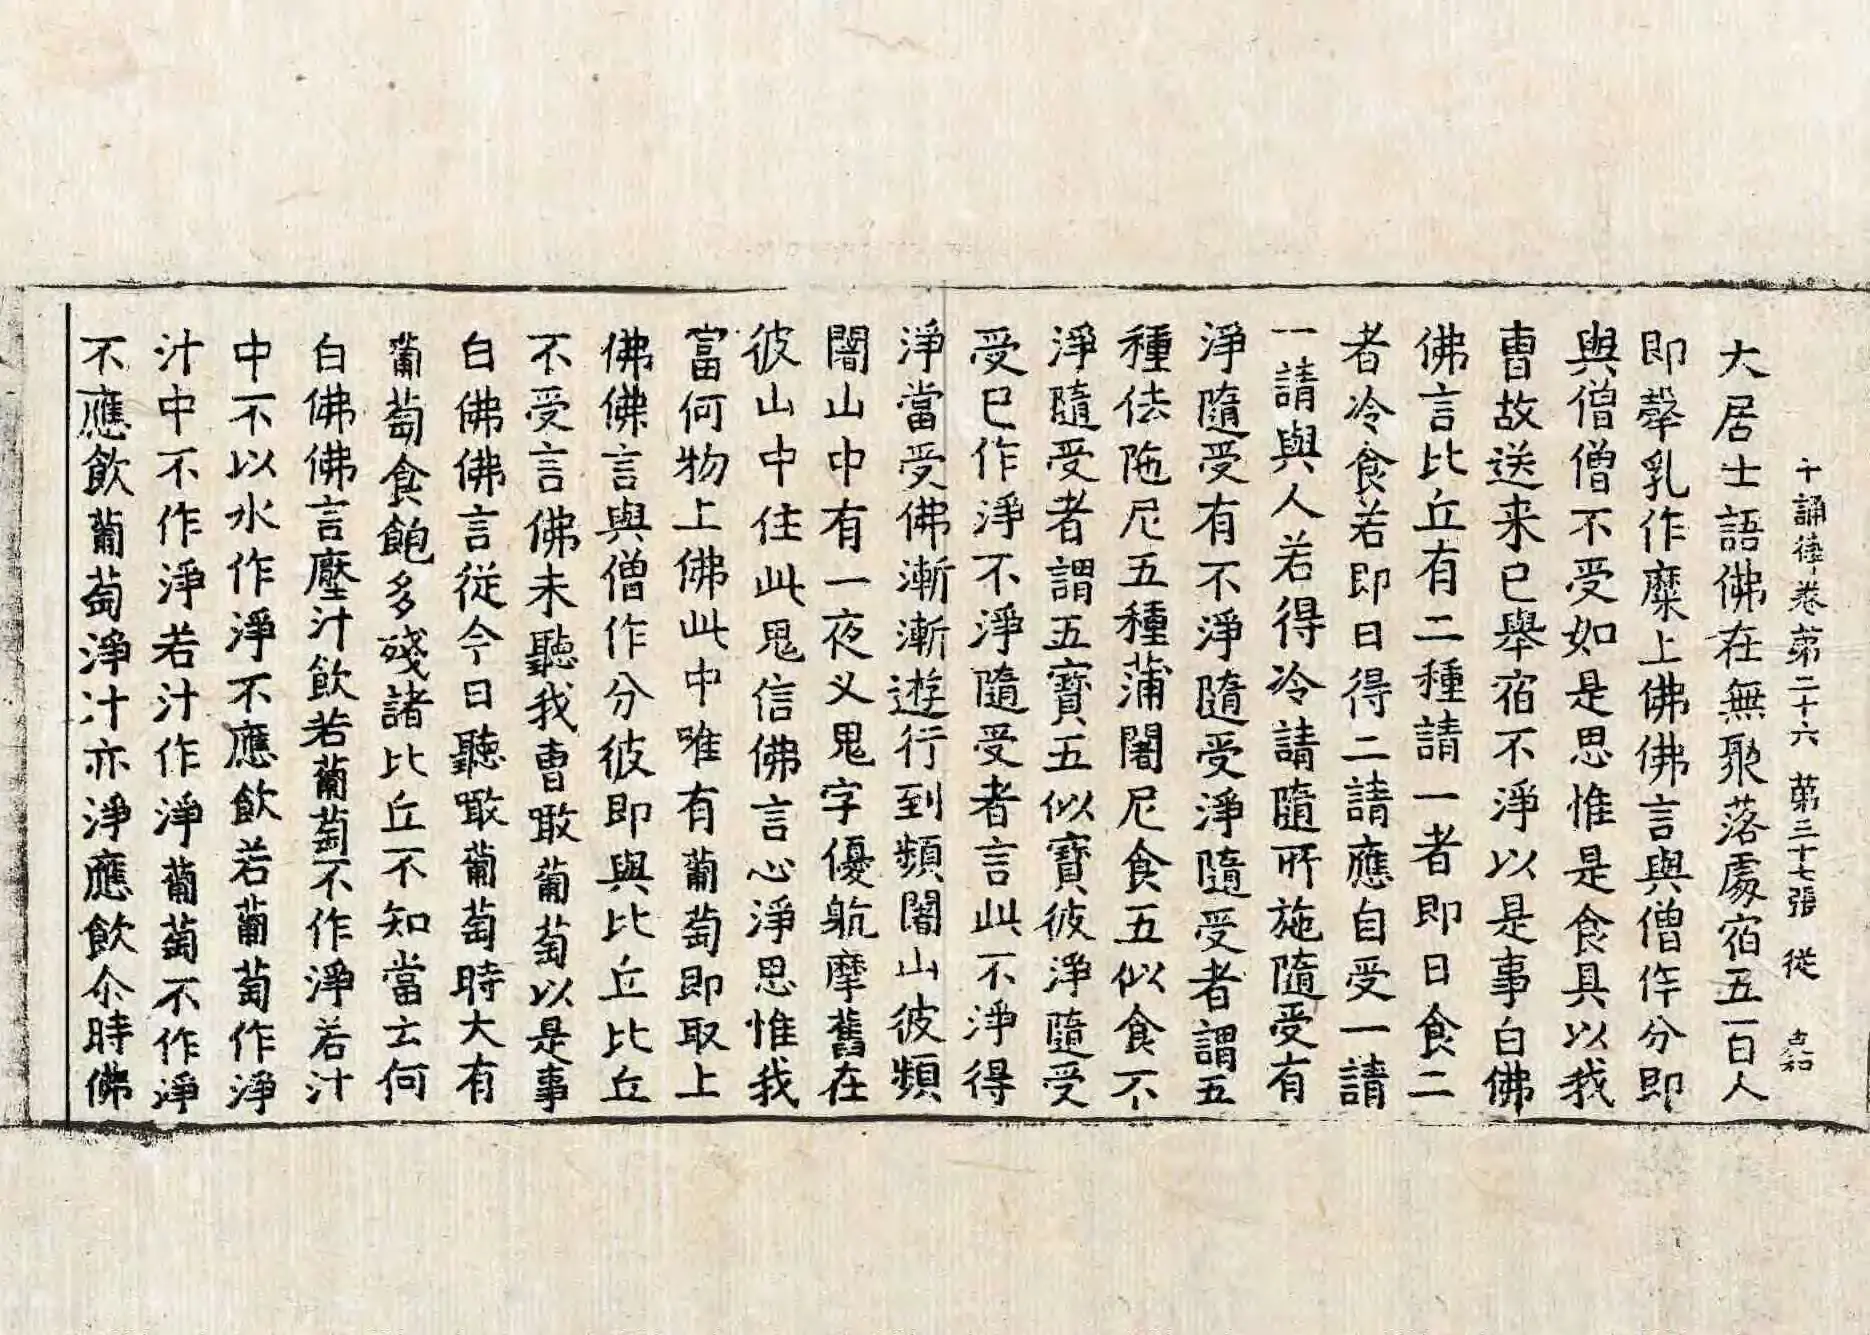 十誦律卷第二十六 第三十七張 從
大居士語佛在無聚落處宿五百人
即𤚲乳作糜上佛佛言與僧作分即
與僧僧不受如是思惟是食具以我
曹故送来已舉宿不淨以是事白佛
佛言比丘有二種請一者即日食二
者冷食若即日得二請應自受一請
一請與人若得冷請隨所施隨受有
淨隨受有不淨隨受淨隨受者謂五
種佉陁尼五種蒲闍尼食五似食不
淨隨受者謂五寶五似寶彼淨隨受
受已作淨不淨隨受者言此不淨得
淨當受佛漸漸遊行到頻闍山彼頻
闍山中有一夜叉鬼字優䑣摩舊在
彼山中住此鬼信佛言心淨思惟我
當何物上佛此中唯有葡萄即取上
佛佛言與僧作分彼即與比丘比丘
不受言佛未聽我曹噉葡萄以是事
白佛佛言從今日聽噉葡萄時大有
葡萄食飽多殘諸比丘不知當云何
白佛佛言壓汁飲若葡萄不作淨若汁
中不以水作淨不應飲若葡萄作淨
汁中不作淨若汁作淨葡萄不作淨
不應飲葡萄淨汁亦淨應飲尒時佛